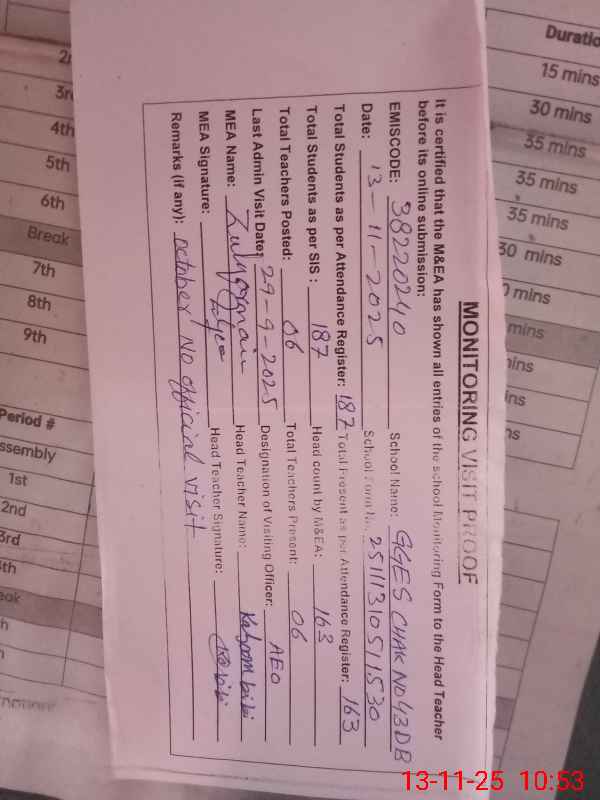 MONITORING VISIT PROOF
It is certified that the M&EA has shown all entries of the school Monitoring Form to the Head Teacher
before its online submission:
EMISCODE: 38220240 School Name: GGES CHAK NO 43DB
Date: 13-11-2025 School Form No. 2511131051530
Total Students as per Attendance Register: 187 Total Present as per Attendance Register: 163
Total Students as per SIS : 187 Head count by M&EA: 163
Total Teachers Posted: 06 Total Teachers Present: 06
Last Admin Visit Date: 29-9-2025 Designation of Visiting Officer: AEO
MEA Name: Head Teacher Name:
MEA Signature: Head Teacher Signature:
Remarks (if any): october No official visit
2n
3rd
4th
5th
6th
Break
7th
8th
9th
Period #
ssembly
1st
2nd
3rd
4th
eak
h
Duratio
15 mins
30 mins
35 mins
35 mins
35 mins
30 mins
0 mins
mins
ins
ins
ns
13-11-25 10:53